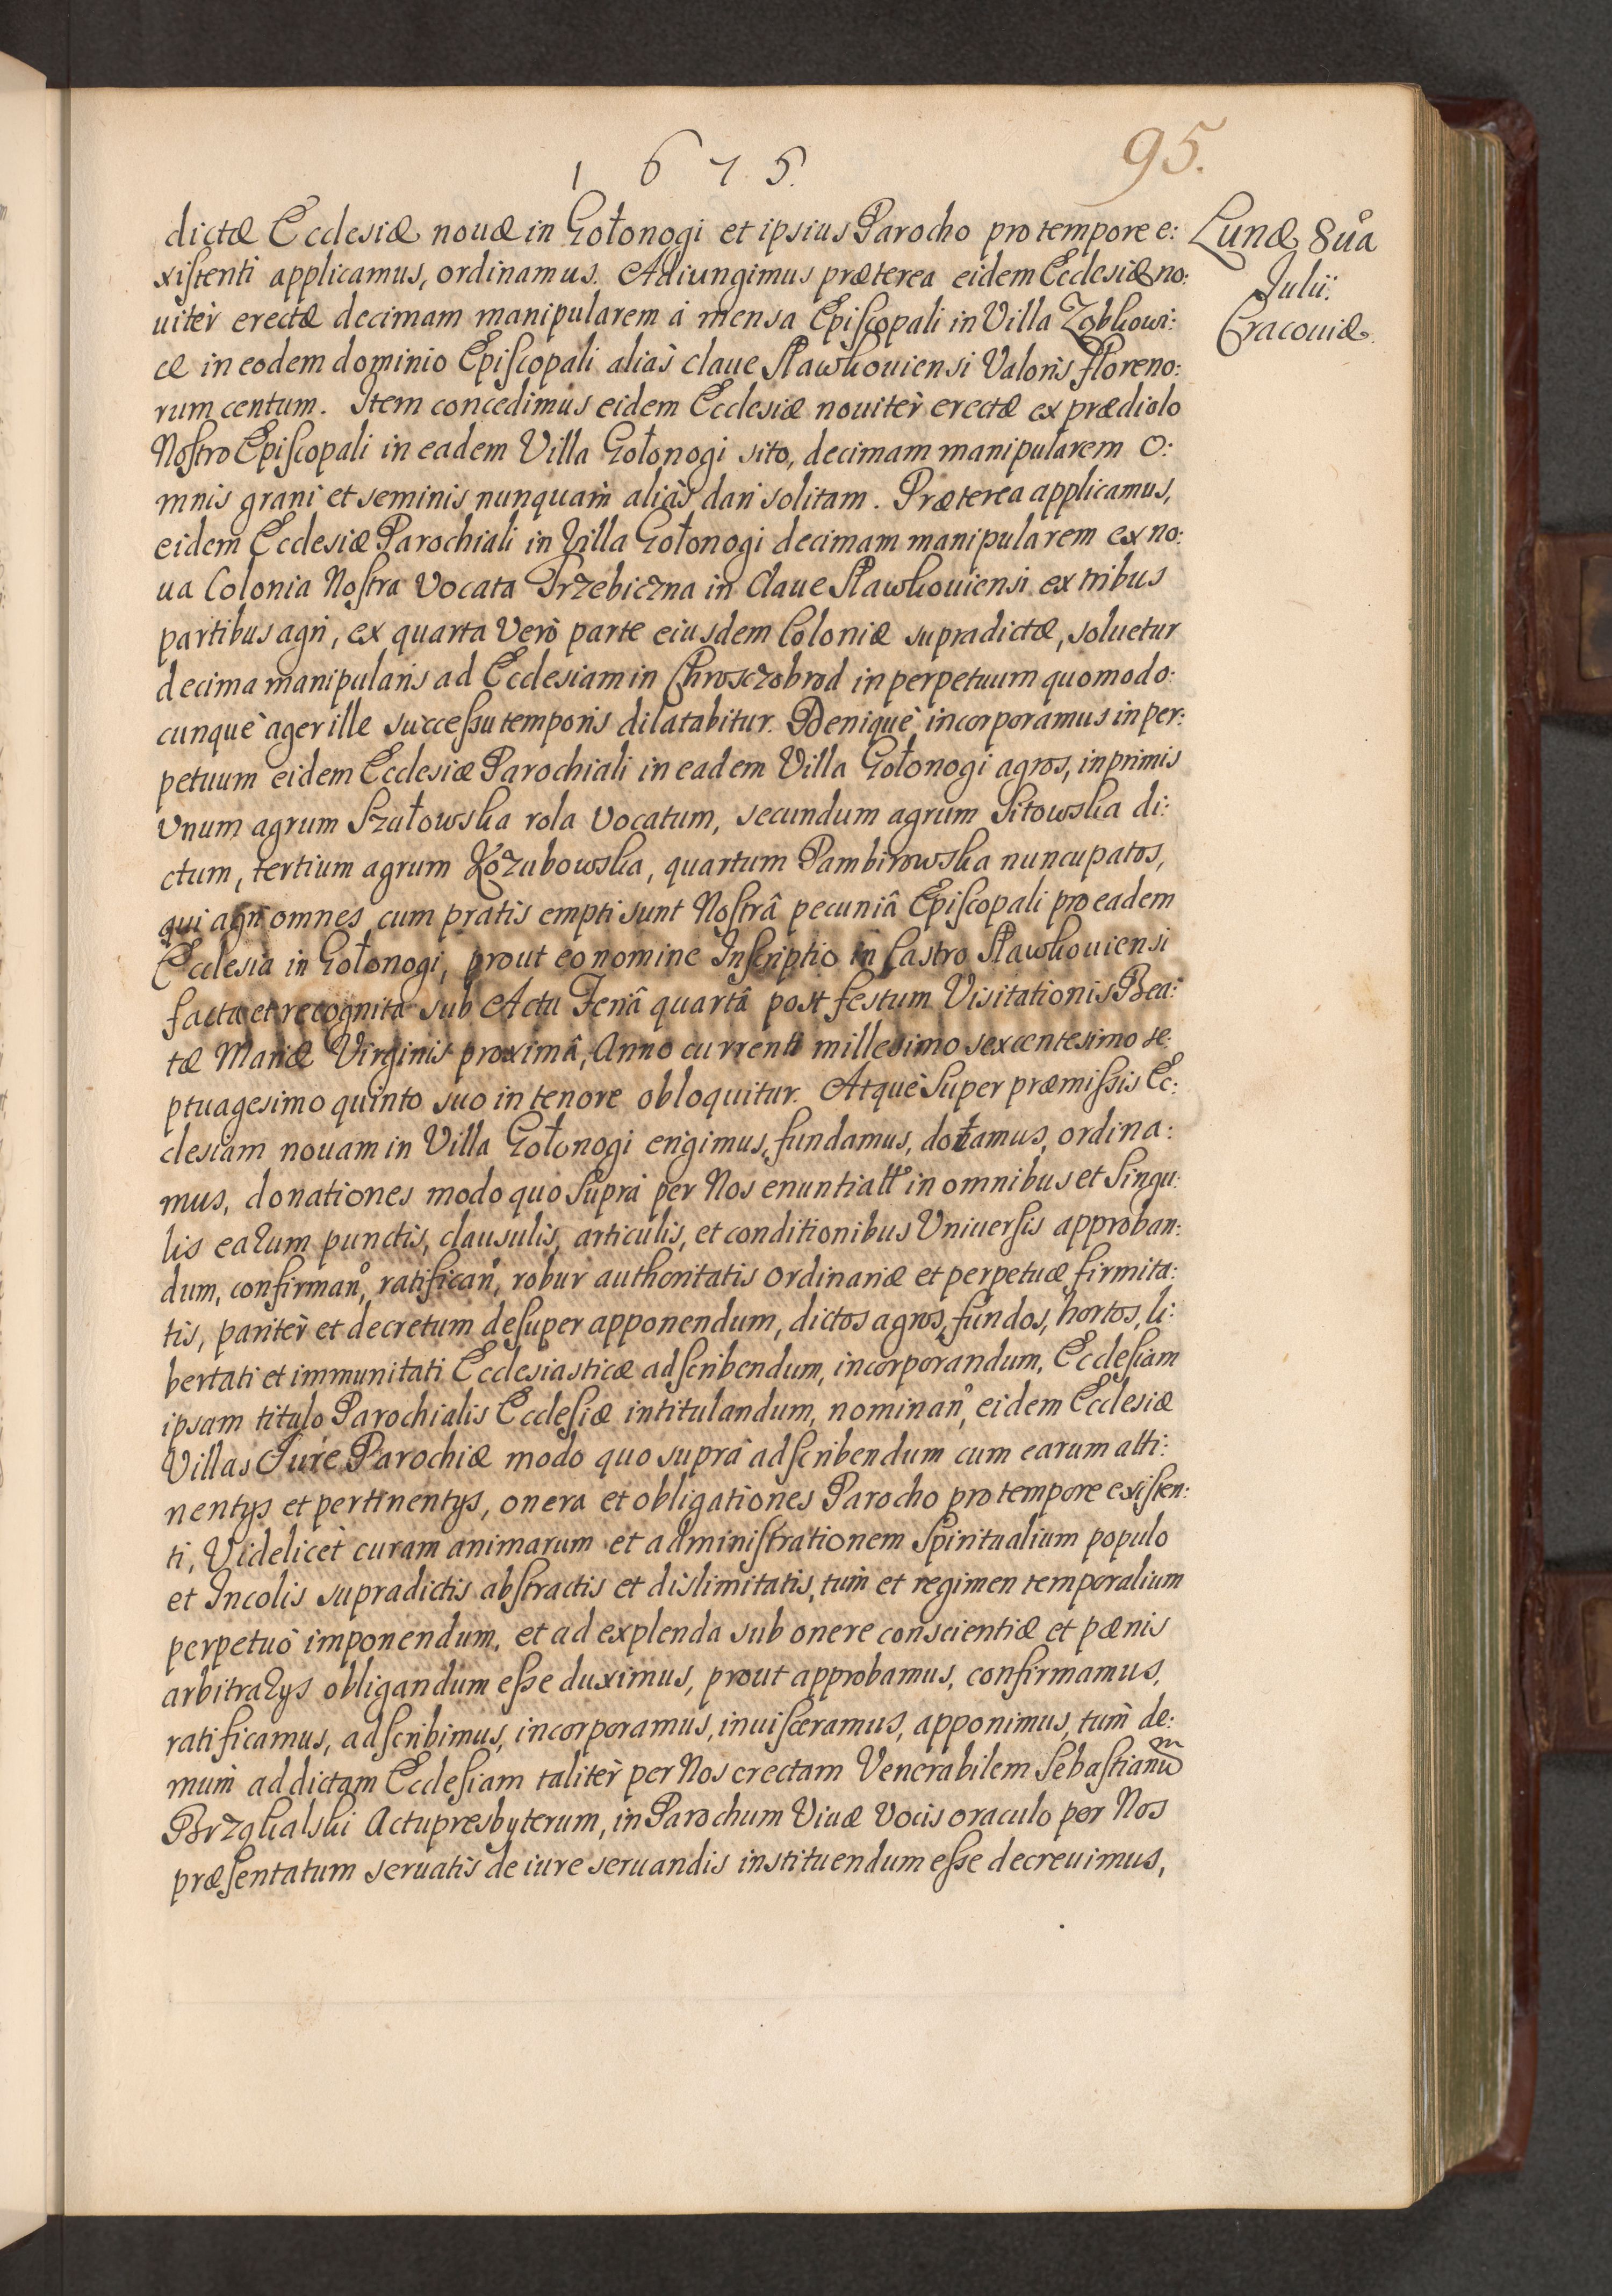 1675.
95.
dictæ Ecclesiæ nouæ in Gołonogi et ipsius Parocho pro tempore e:
xistenti applicamus, ordinamus. Adiungimus præterea eidem Ecclesiæ no:
uitèr erectæ decimam manipularem à mensa Episcopali in Villa Ząbkowi:
ce in eodem dominio Episcopali aliàs claue Sławkouiensi Valoris floreno:
rum centum. Item concedimus eidem Ecclesiæ nouitèr erectæ ex prædiolo
Nostro Episcopali in eadem Villa Gołonogi sito, decimam manipularem o:
mnis grani et seminis nunquam aliàs dari solitam. Præterea applicamus,
eidem Ecclesiæ Parochiali in Villa Gołonogi decimam manipularem ex no:
ua Colonia Nostra Vocata Trzebiczna in Claue Sławkouiensi ex tribus
partibus agri, ex quarta Verò parte eiusdem Coloniæ supradictæ, soluetur
decima manipularis ad Ecclesiam in Chrosczobrod in perpetuum quomodo:
cunquè ager ille successu temporis dilatabitur. Deniquè incorporamus in per:
petuum eidem Ecclesiæ Parochiali in eadem Villa Gołonogi agros, inprimis
Vnum agrum Szałowska rola Vocatum, secundum agrum Sitowska di:
ctum, tertium agrum Kozubowska, quartum Pambirowska nuncupatos,
qui agri omnes cum pratis empti sunt Nostrâ pecuniâ Episcopali pro eadem
Ecclesia in Gołonogi, prout eo nomine Inscriptio in Castro Sławkouiensi
facta et recognita sub Actu Feriâ quartâ post festum Visitationis Bea:
tæ Mariæ Virginis proximâ, Anno currenti millesimo sexcentesimo se:
ptuagesimo quinto suo in tenore obloquitur. Atquè Super præmissis Ec:
clesiam nouam in Villa Gołonogi erigimus, fundamus, dotamus, ordina:
mus, donationes modo quo Suprà per Nos enuntiatt° in omnibus et Singu:
lis earum punctis, clausulis, articulis, et conditionibus Vniuersis approban:
dum, confirman°, ratifican°, robur authoritatis ordinariæ et perpetuæ firmita:
tis, paritèr et decretum desuper apponendum, dictos agros, fundos, hortos, li:
bertati et immunitati Ecclesiasticæ adscribendum, incorporandum, Ecclesiam
ipsam titulo Parochialis Ecclesiæ intitulandum, nominan°, eidem Ecclesiæ
Villas Iure Parochiæ modo quo suprà adscribendum cum earum atti:
nentys et pertinentys, onera et obligationes Parocho pro tempore existen:
ti, Videlicèt curam animarum et administrationem Spiritualium populo
et Incolis supradictis abstractis et dislimitatis, tum et regimen temporalium
perpetuò imponendum, et ad explenda sub onere conscientiæ et pœnis
arbitrarys obligandum esse duximus, prout approbamus, confirmamus,
ratificamus, adscribimus, incorporamus, inuisceramus, apponimus, tum de:
mum ad dictam Ecclesiam talitèr per Nos erectam Venerabilem Sebastianum
Brząkalski Actupresbyterum, in Parochum Viuæ Vocis oraculo per Nos
præsentatum seruatis de iure seruandis instituendum esse decreuimus,
Lunæ 8ua
Julii.
Cracouiæ.